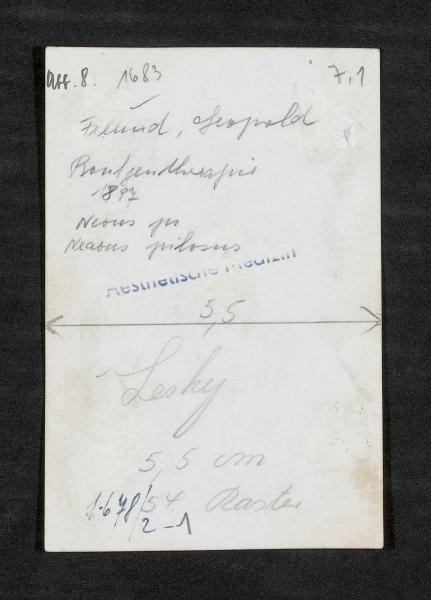 Aff. 8. 1683 7,1
Freund, Leopold
Röntgentherapie
1897
Neaus pilosus
Aesthetische Medizin
5,5
Lesky
5,5 cm
54 Raster
1-678/2-1